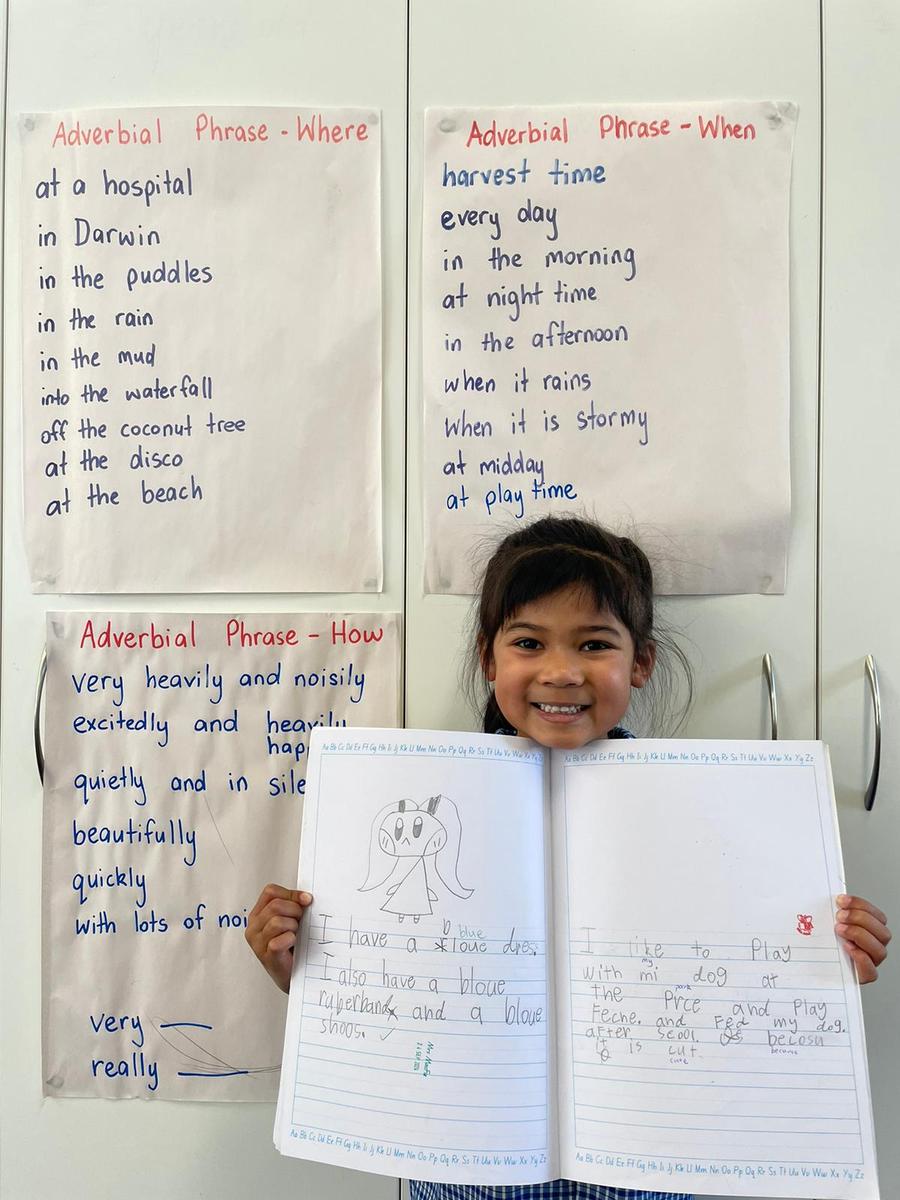 Adverbial Phrase - Where
at a hospital
in Darwin
in the puddles
in the rain
in the mud
into the waterfall
off the coconut tree
at the disco
at the beach
Adverbial Phrase - When
harvest time
every day
in the morning
at night time
in the afternoon
when it rains
When it is stormy
at midday
at play time
Adverbial Phrase - How
very heavily and noisily
excitedly and heavily
hap
quietly and in sile
beautifully
quickly
with lots of noi
very
really
Aa Bb Cc Dd Ee Ff Gg Hh Ii Jj Kk Ll Mm Nn Oo Pp Qq Rr Ss Tt Uu Vv Ww Xx Yy Zz
b blue
I have a loue dres.
I also have a bloue
ruberband and a bloue
shoos.
Aa Bb Cc Dd Ee Ff Gg Hh Ii Jj Kk Ll Mm Nn Oo Pp Qq Rr Ss Tt Uu Vv Ww Xx Yy Zz
Aa Bb Cc Dd Ee Ff Gg Hh Ii Jj Kk Ll Mm Nn Oo Pp Qq Rr Ss Tt Uu Vv Ww Xx Yy Zz
I like to Play
my
with mi dog at
park
the Prce and Play
Feche. and Fed my dog.
after scool. becosu
because
it is cut.
cute
Aa Bb Cc Dd Ee Ff Gg Hh Ii Jj Kk Ll Mm Nn Oo Pp Qq Rr Ss Tt Uu Vv Ww Xx Yy Zz